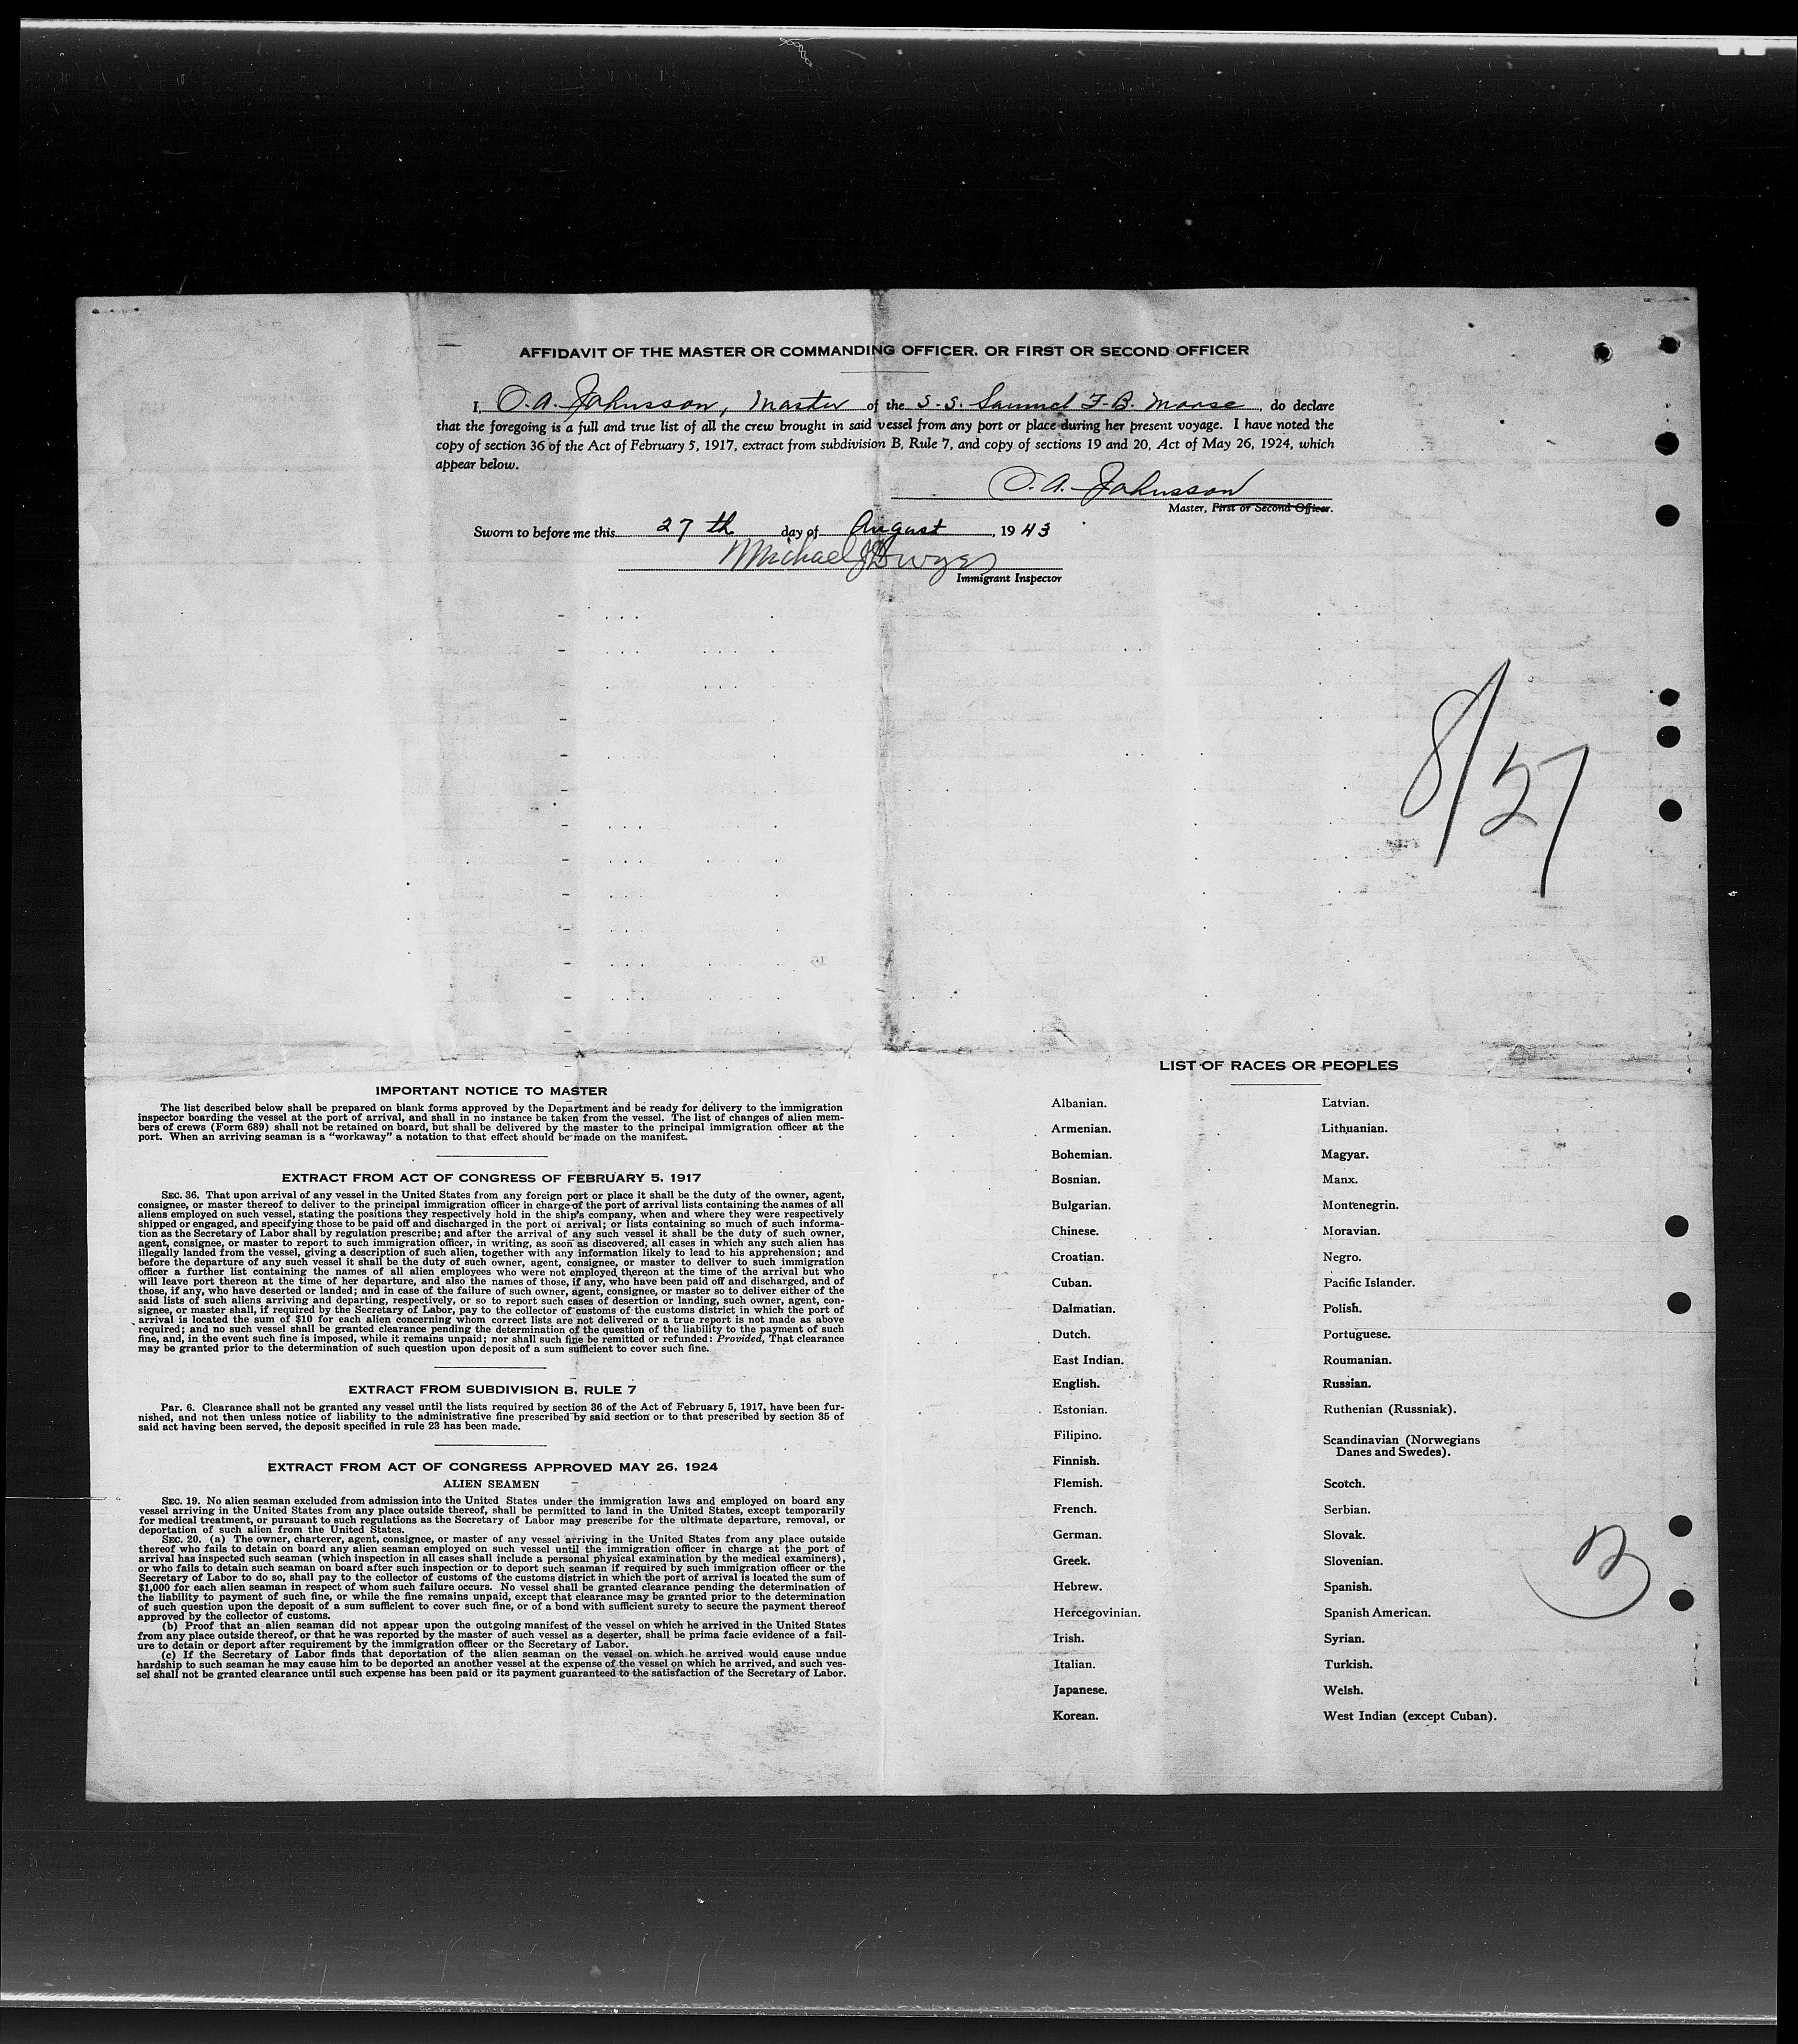 AFFIDAVIT OF THE MASTER OR COMMANDING OFFICER, OR FIRST OR SECOND OFFICER
I, O. A. Johnsson, Master of the S. S. Samuel F. B. Morse, do declare
that the foregoing is a full and true list of all the crew brought in said vessel from any port or place during her present voyage. I have noted the
copy of section 36 of the Act of February 5, 1917, extract from subdivision B, Rule 7, and copy of sections 19 and 20, Act of May 26, 1924, which
appear below.
O. A. Johnsson
Master, First or Second Officer.
Sworn to before me this 27th day of August, 1943
Michael J Dwyer
Immigrant Inspector
8/27
IMPORTANT NOTICE TO MASTER
The list described below shall be prepared on blank forms approved by the Department and be ready for delivery to the immigration
inspector boarding the vessel at the port of arrival, and shall in no instance be taken from the vessel. The list of changes of alien mem-
bers of crews (Form 689) shall not be retained on board, but shall be delivered by the master to the principal immigration officer at the
port. When an arriving seaman is a "workaway" a notation to that effect should be made on the manifest.
EXTRACT FROM ACT OF CONGRESS OF FEBRUARY 5, 1917
SEC. 36. That upon arrival of any vessel in the United States from any foreign port or place it shall be the duty of the owner, agent,
consignee, or master thereof to deliver to the principal immigration officer in charge of the port of arrival lists containing the names of all
aliens employed on such vessel, stating the positions they respectively hold in the ship's company, when and where they were respectively
shipped or engaged, and specifying those to be paid off and discharged in the port of arrival; or lists containing so much of such informa-
tion as the Secretary of Labor shall by regulation prescribe; and after the arrival of any such vessel it shall be the duty of such owner,
agent, consignee, or master to report to such immigration officer, in writing, as soon as discovered, all cases in which any such alien has
illegally landed from the vessel, giving a description of such alien, together with any information likely to lead to his apprehension; and
before the departure of any such vessel it shall be the duty of such owner, agent, consignee, or master to deliver to such immigration
officer a further list containing the names of all alien employees who were not employed thereon at the time of the arrival but who
will leave port thereon at the time of her departure, and also the names of those, if any, who have been paid off and discharged, and of
those, if any, who have deserted or landed; and in case of the failure of such owner, agent, consignee, or master so to deliver either of the
said lists of such aliens arriving and departing, respectively, or so to report such cases of desertion or landing, such owner, agent, con-
signee, or master shall, if required by the Secretary of Labor, pay to the collector of customs of the customs district in which the port of
arrival is located the sum of $10 for each alien concerning whom correct lists are not delivered or a true report is not made as above
required; and no such vessel shall be granted clearance pending the determination of the question of the liability to the payment of such
fine, and, in the event such fine is imposed, while it remains unpaid; nor shall such fine be remitted or refunded: Provided, That clearance
may be granted prior to the determination of such question upon deposit of a sum sufficient to cover such fine.
EXTRACT FROM SUBDIVISION B, RULE 7
Par. 6. Clearance shall not be granted any vessel until the lists required by section 36 of the Act of February 5, 1917, have been fur-
nished, and not then unless notice of liability to the administrative fine prescribed by said section or to that prescribed by section 35 of
said act having been served, the deposit specified in rule 23 has been made.
EXTRACT FROM ACT OF CONGRESS APPROVED MAY 26, 1924
ALIEN SEAMEN
SEC. 19. No alien seaman excluded from admission into the United States under the immigration laws and employed on board any
vessel arriving in the United States from any place outside thereof, shall be permitted to land in the United States, except temporarily
for medical treatment, or pursuant to such regulations as the Secretary of Labor may prescribe for the ultimate departure, removal, or
deportation of such alien from the United States.
SEC. 20. (a) The owner, charterer, agent, consignee, or master of any vessel arriving in the United States from any place outside
thereof who fails to detain on board any alien seaman employed on such vessel until the immigration officer in charge at the port of
arrival has inspected such seaman (which inspection in all cases shall include a personal physical examination by the medical examiners),
or who fails to detain such seaman on board after such inspection or to deport such seaman if required by such immigration officer or the
Secretary of Labor to do so, shall pay to the collector of customs of the customs district in which the port of arrival is located the sum of
$1,000 for each alien seaman in respect of whom such failure occurs. No vessel shall be granted clearance pending the determination of
the liability to payment of such fine, or while the fine remains unpaid, except that clearance may be granted prior to the determination
of such question upon the deposit of a sum sufficient to cover such fine, or of a bond with sufficient surety to secure the payment thereof
approved by the collector of customs.
(b) Proof that an alien seaman did not appear upon the outgoing manifest of the vessel on which he arrived in the United States
from any place outside thereof, or that he was reported by the master of such vessel as a deserter, shall be prima facie evidence of a fail-
ure to detain or deport after requirement by the immigration officer or the Secretary of Labor.
(c) If the Secretary of Labor finds that deportation of the alien seaman on the vessel on which he arrived would cause undue
hardship to such seaman he may cause him to be deported an another vessel at the expense of the vessel on which he arrived, and such ves-
sel shall not be granted clearance until such expense has been paid or its payment guaranteed to the satisfaction of the Secretary of Labor.
LIST OF RACES OR PEOPLES
Albanian.
Armenian.
Bohemian.
Bosnian.
Bulgarian.
Chinese.
Croatian.
Cuban.
Dalmatian.
Dutch.
East Indian.
English.
Estonian.
Filipino.
Finnish.
Flemish.
French.
German.
Greek.
Hebrew.
Hercegovinian.
Irish.
Italian.
Japanese.
Korean.
Latvian.
Lithuanian.
Magyar.
Manx.
Montenegrin.
Moravian.
Negro.
Pacific Islander.
Polish.
Portuguese.
Roumanian.
Russian.
Ruthenian (Russniak).
Scandinavian (Norwegians
Danes and Swedes).
Scotch.
Serbian.
Slovak.
Slovenian.
Spanish.
Spanish American.
Syrian.
Turkish.
Welsh.
West Indian (except Cuban).